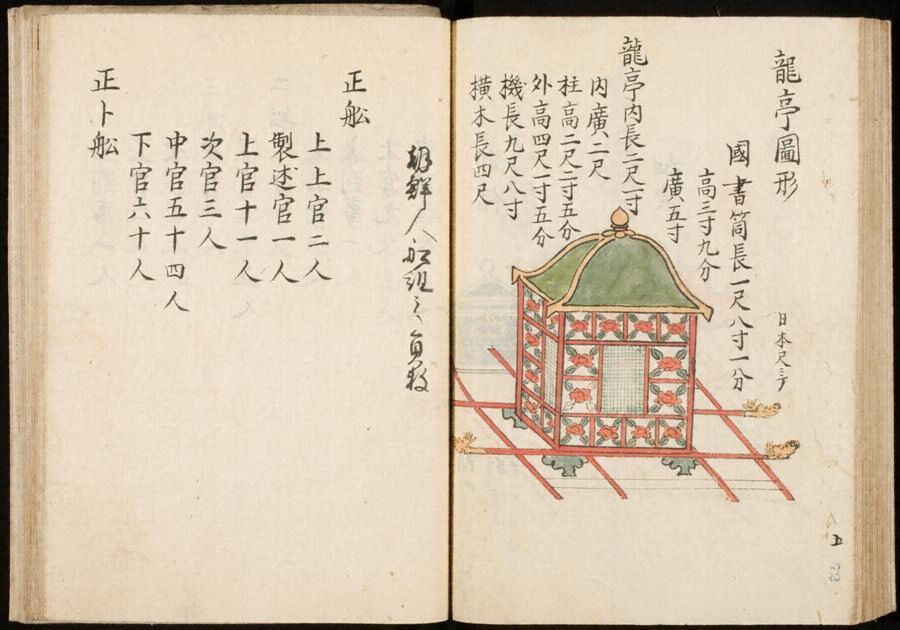 龍亭圖形
日本尺ニテ
國書筒長一尺八寸一分
高三寸九分
廣五寸
龍亭内長二尺一寸
内廣二尺
柱高二尺二寸五分
外高四尺一寸五分
機長九尺八寸
横木長四尺
五
朝鮮人船組之員数
正舩
上上官二人
製述官一人
上官十一人
次官三人
中官五十四人
下官六十人
正卜舩